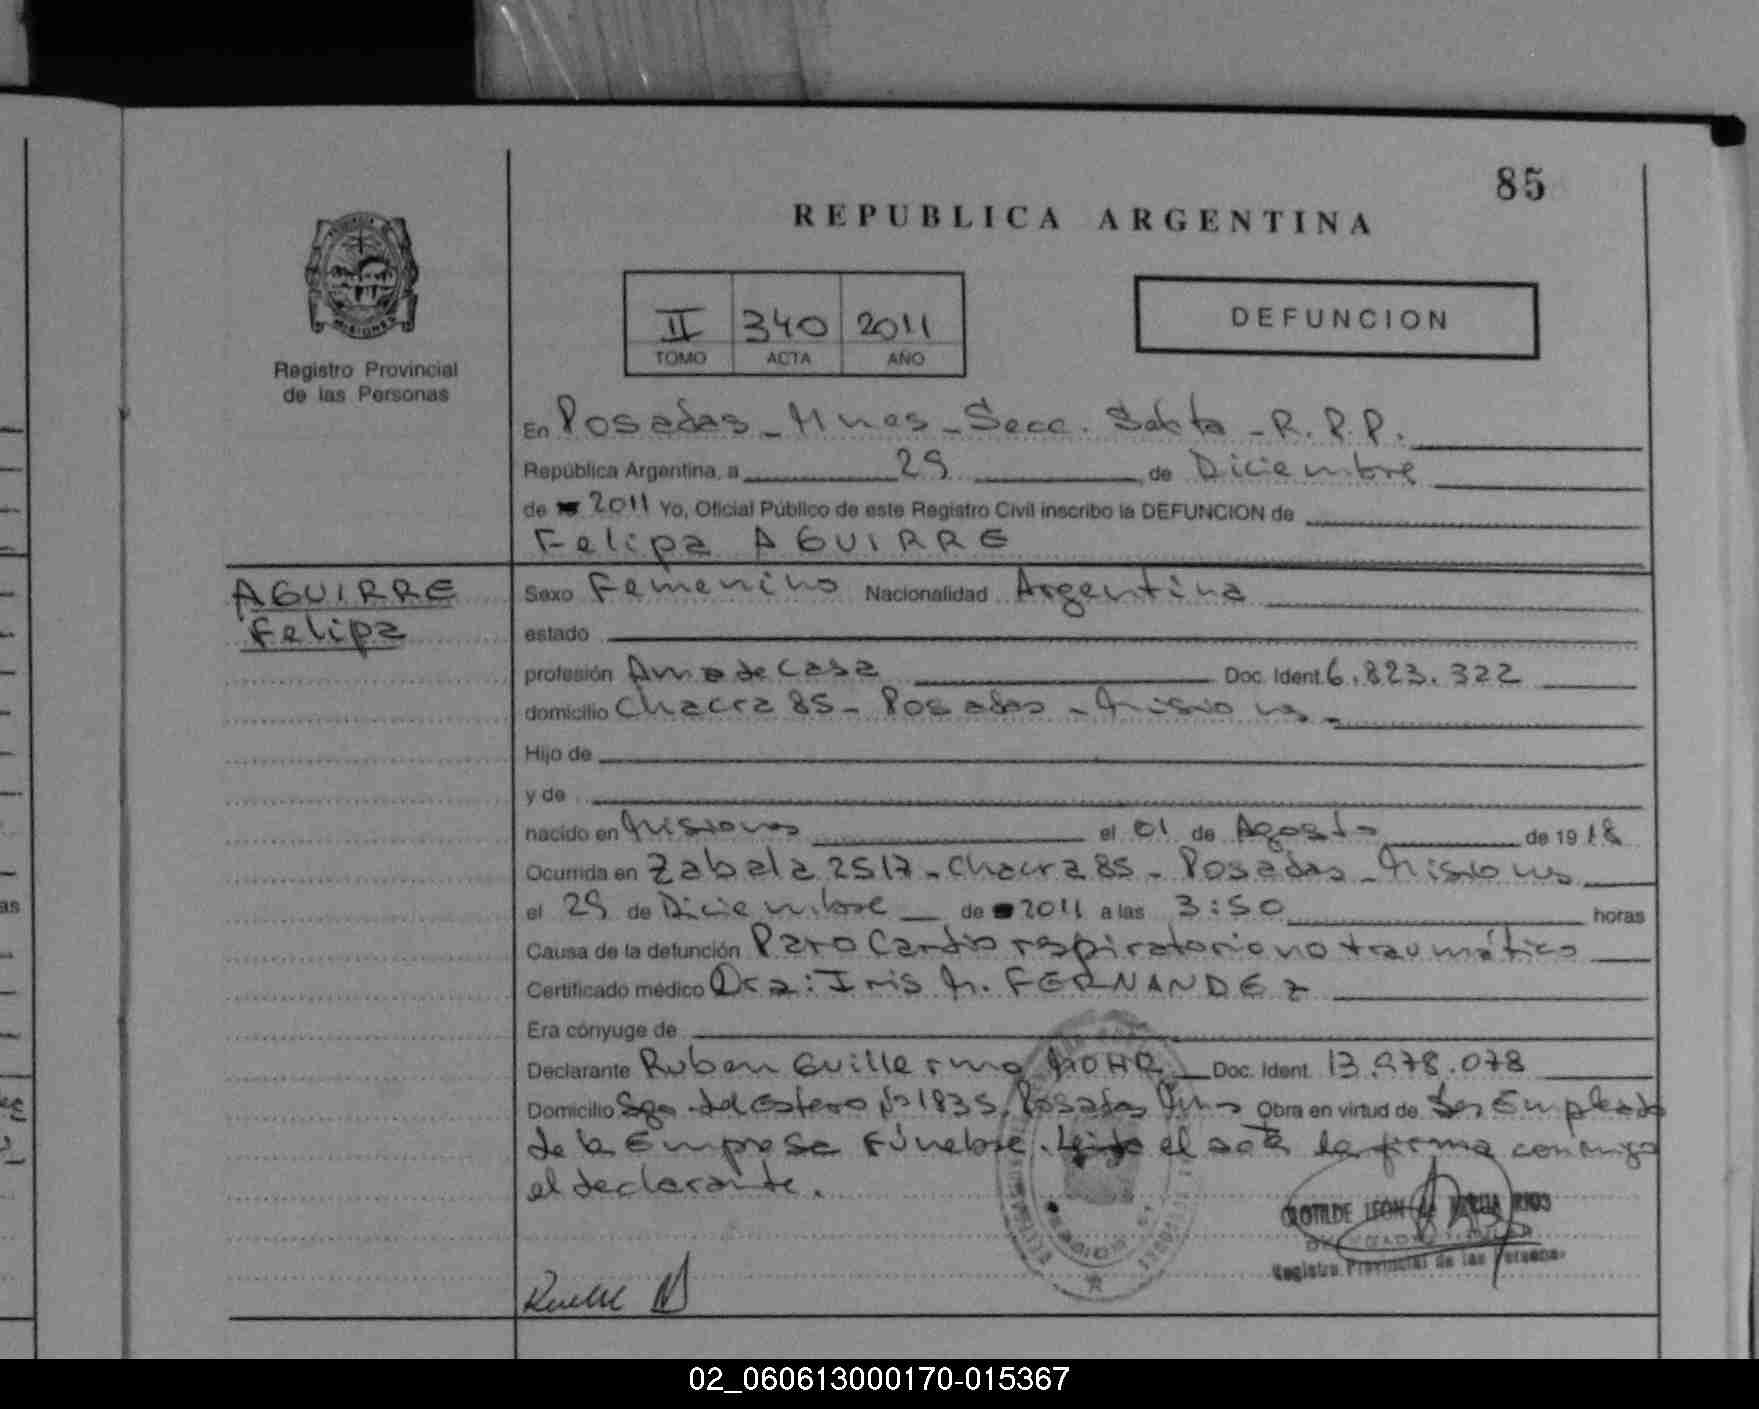 85
REPUBLICA ARGENTINA
MISIONES
Registro Provincial
de las Personas
II 340 2011
TOMO ACTA AÑO
DEFUNCION
En Posadas - Mnes - Secc. Sexta - R.P.P.
República Argentina, a 29 de Diciembre
de 2011 Yo, Oficial Público de este Registro Civil inscribo la DEFUNCION de
Felipa AGUIRRE
AGUIRRE
Felipa
Sexo Femenino Nacionalidad Argentina
estado
profesión Ama de Casa Doc. Ident. 6.823.322
domicilio Chacra 85 - Posadas - Misiones -
Hijo de
y de
nacido en Misiones el 01 de Agosto de 1918
Ocurrida en Zabala 2517 - Chacra 85 - Posadas - Misiones
el 29 de Diciembre de 2011 a las 3:50 horas
Causa de la defunción Paro Cardio respiratorio no traumático
Certificado médico Dra: Iris M. FERNANDEZ
Era cónyuge de
Declarante Ruben Guillermo MOHR Doc. Ident. 13.978.078
Domicilio Sgo. del Estero Nº 1835, Posadas Mns Obra en virtud de Ser Empleado
de la Empresa Fúnebre. Leída el acta la firma conmigo
el declarante.
CLOTILDE LEON DE RIOS
Registro Provincial de las Personas
02_060613000170-015367